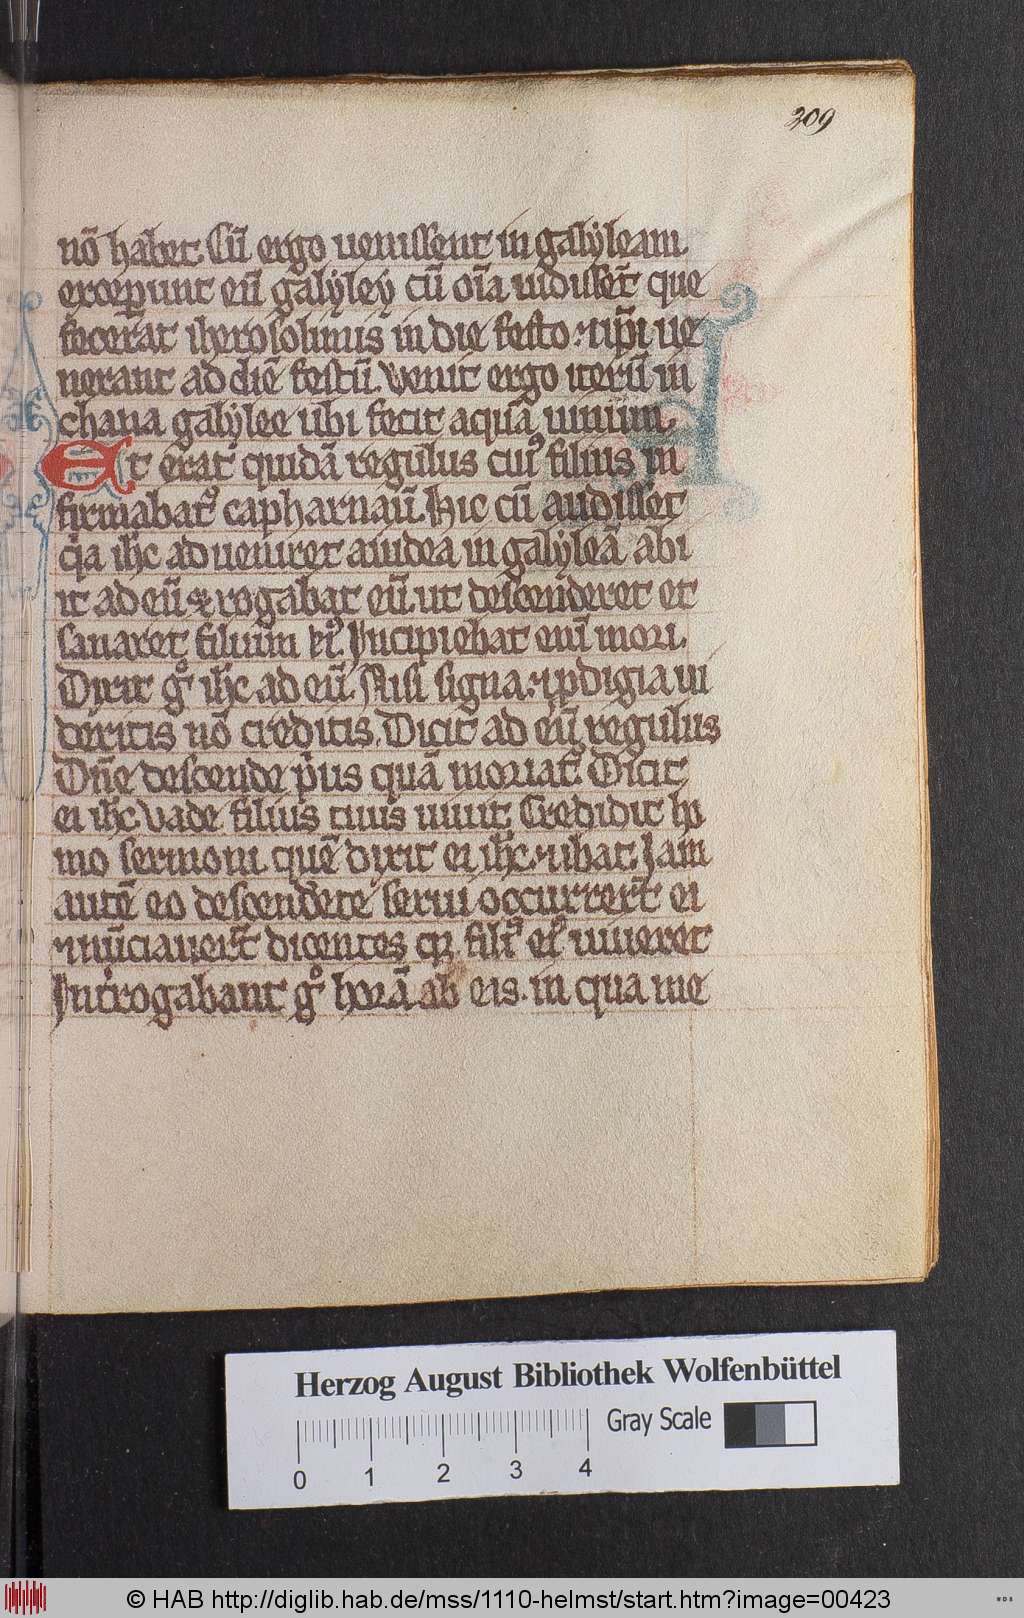 209
nō habet. Cū ergo uenissent in galyleam
exceꝑunt eū galyley cū oīa uidissēt que
fecerāt iherosolimis in die festo. ⁊ ip̄i ue
nerant ad diē festū. Venit ergo iterū in
chana galylee ubi fecit aquā uinum.
Et erat quidā regulus cuiꝰ filius in
firmabatᷣ capharnaū. Hic cū audisset
qͥa ih̄c adueniret aiudea in galyleā abi
it ad eū ⁊ rogabat eū. ut descenderet et
sanaret filium eiꝰ. Incipiebat enī mori.
Dixit gͦ ih̄c ad eū. Nisi signa ⁊ ꝓdigia ui
deritis nō creditis. Dicit ad eū regulus
Dn̄e descende pͥus quā moriatᷣ. Dicit
ei ih̄c. Vade filius tuus uiuit. Credidit ho
mo sermoni quē dixit ei ih̄c. ⁊ ibat. Iam
autē eo descendēte serui occurrerūt ei
⁊ nūciauerūt dicentes qꝛ filiꝰ eiꝰ uiueret
Int̄rogabant gͦ horā ab eis. in qua me
Herzog August Bibliothek Wolfenbüttel
Gray Scale
0 1 2 3 4
© HAB http://diglib.hab.de/mss/1110-helmst/start.htm?image=00423